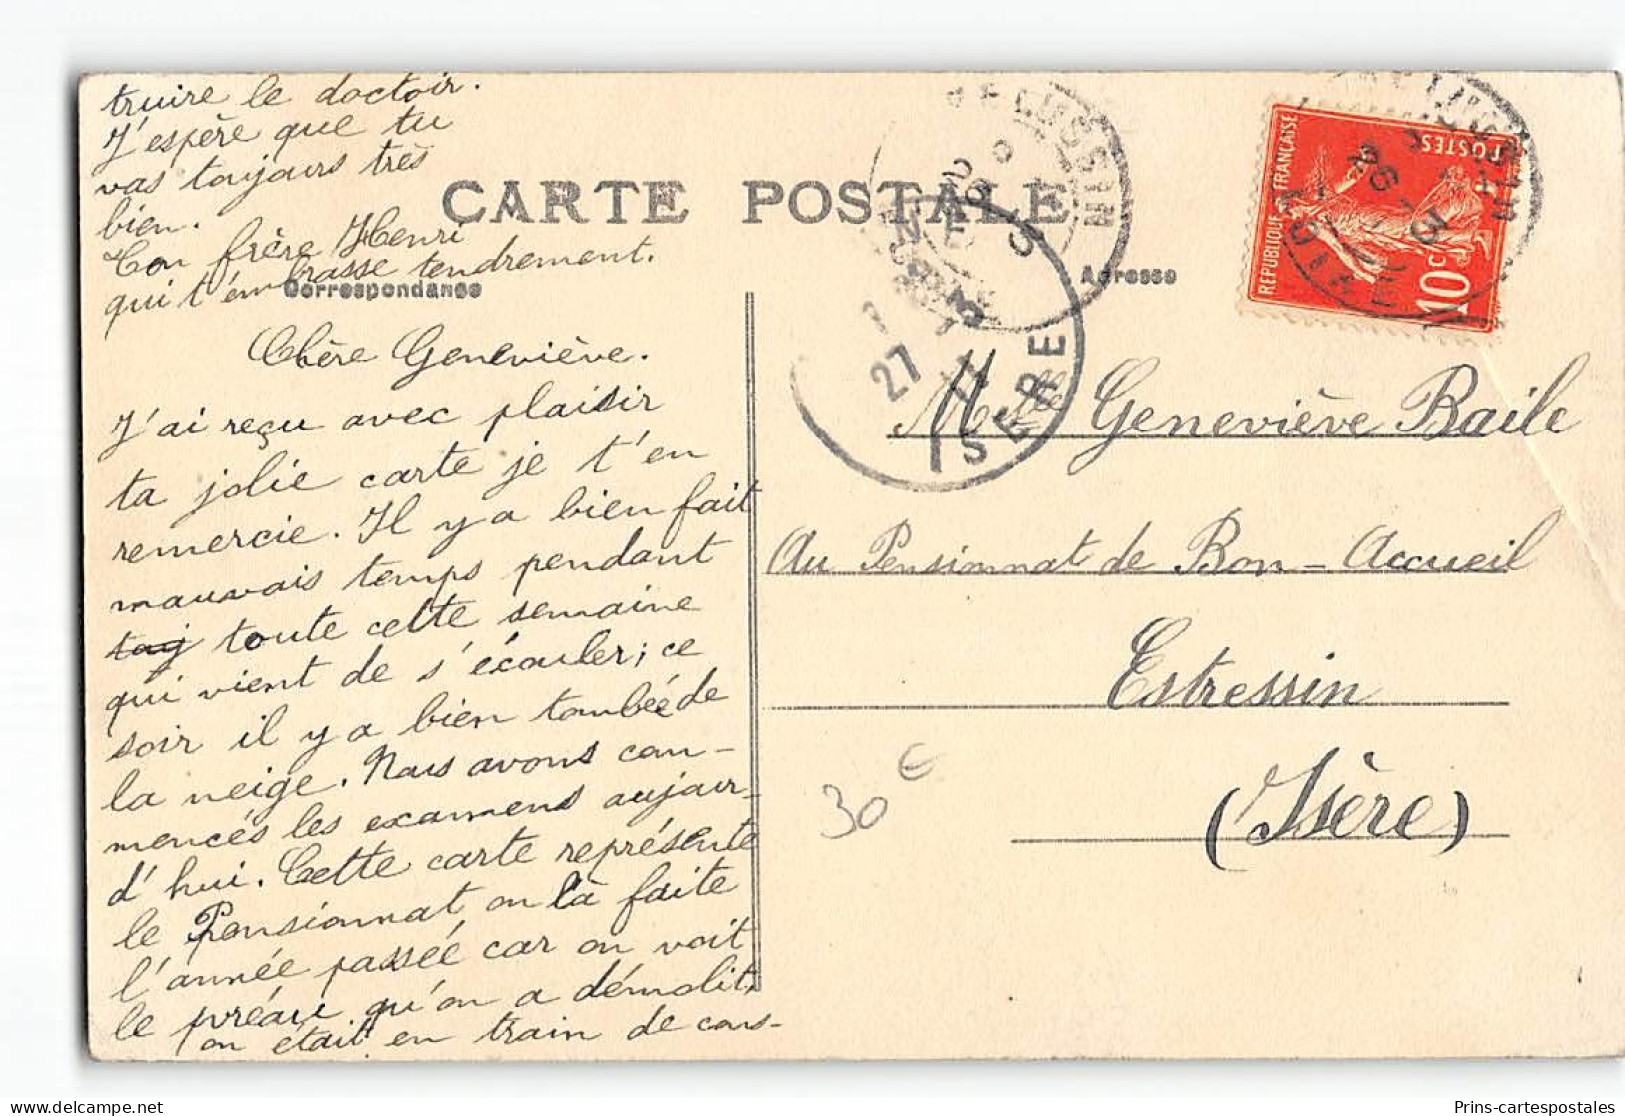 truire le doctoir.
J'espère que tu
vas toujours très
bien.
Ton frère Henri
qui t'embrasse tendrement.
CARTE POSTALE
Correspondance
Adresse
Chère Geneviève.
J'ai reçu avec plaisir
ta jolie carte je t'en
remercie. Il y a bien fait
mauvais temps pendant
touj toute cette semaine
qui vient de s'écouler; ce
soir il y a bien tombée de
la neige. Nous avons com-
mencés les examens aujour-
d'hui. Cette carte représente
le Pensionnat on l'à faite
l'année passée car on voit
le préau qu'on a démolit,
on était en train de cons-
PELUSSIN
26
3
LOIRE
27
ISERE
REPUBLIQUE FRANÇAISE
POSTES
10c
Melle Geneviève Baile
Au Pensionnat de Bon-Accueil
Estressin
(Isère)
30 €
Prins-cartespostales